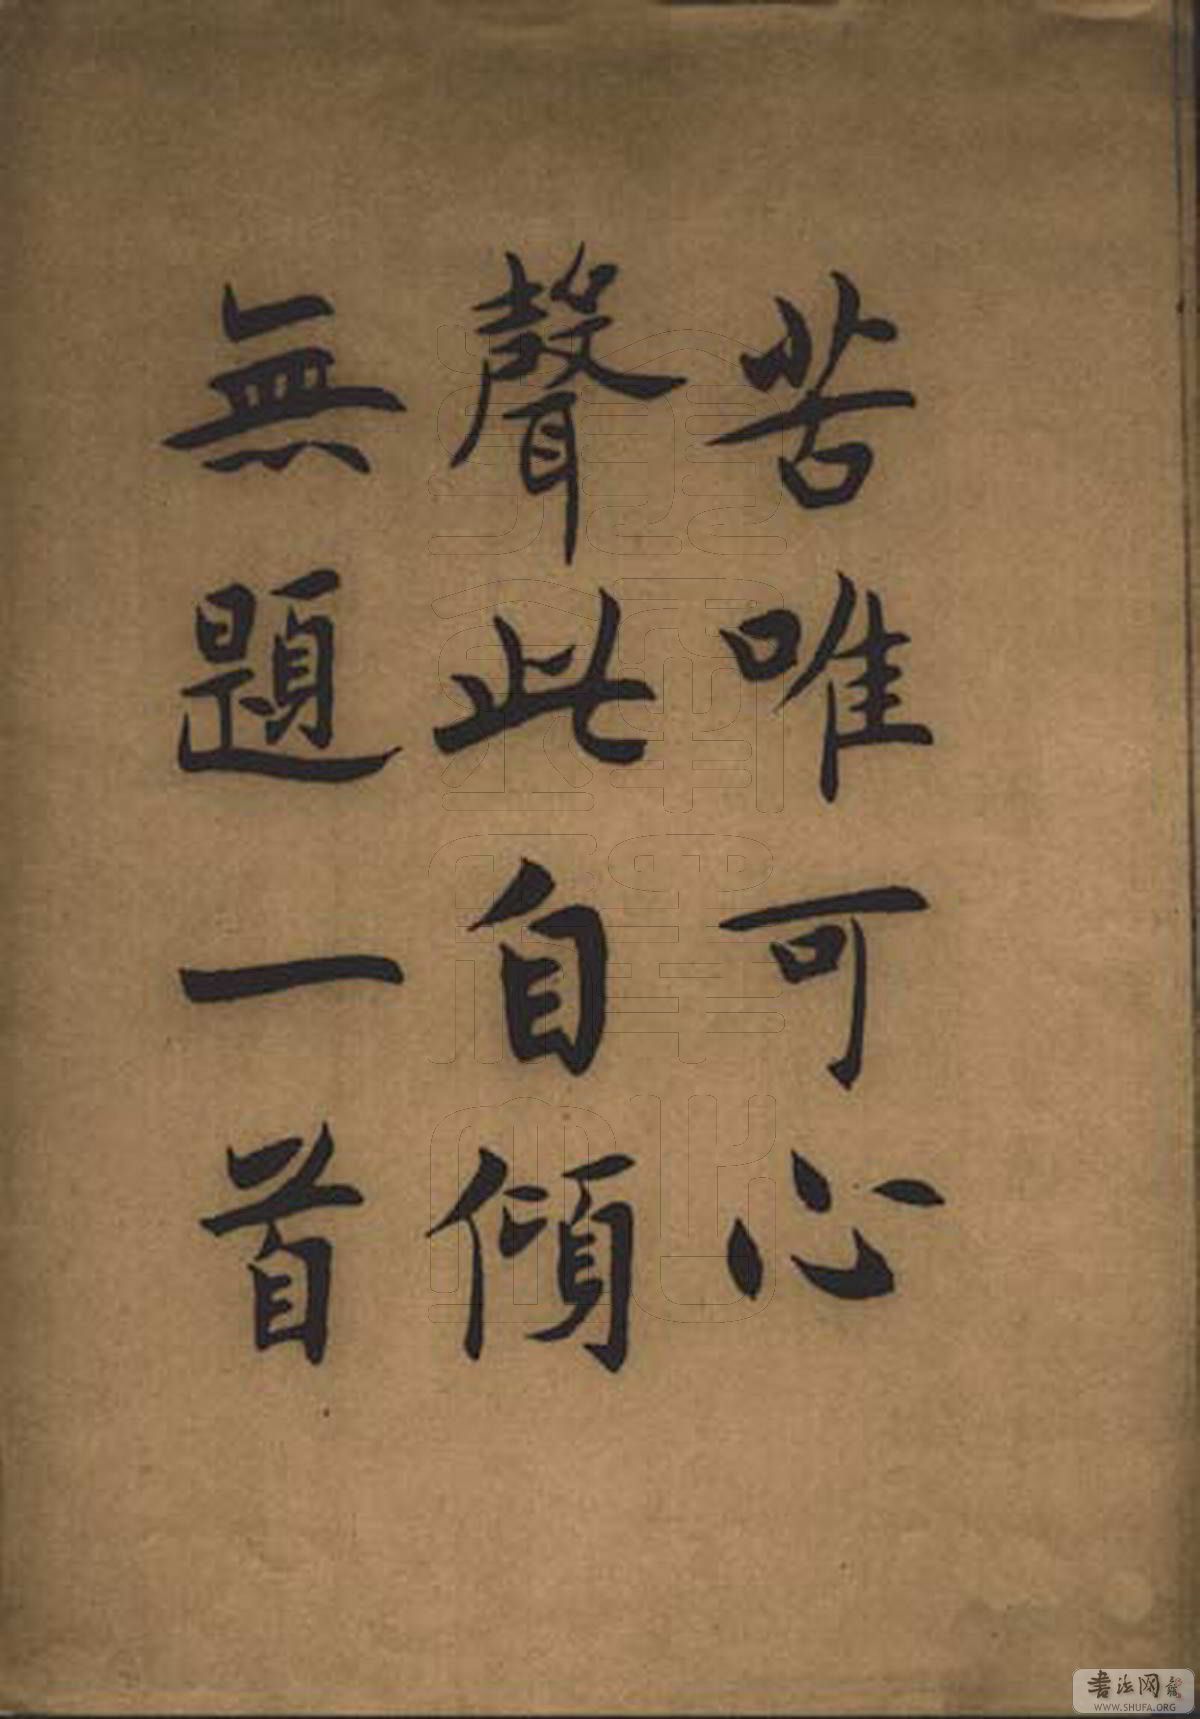 苦唯可心
聲此自傾
無題一首
书法网
WWW.SHUFA.ORG